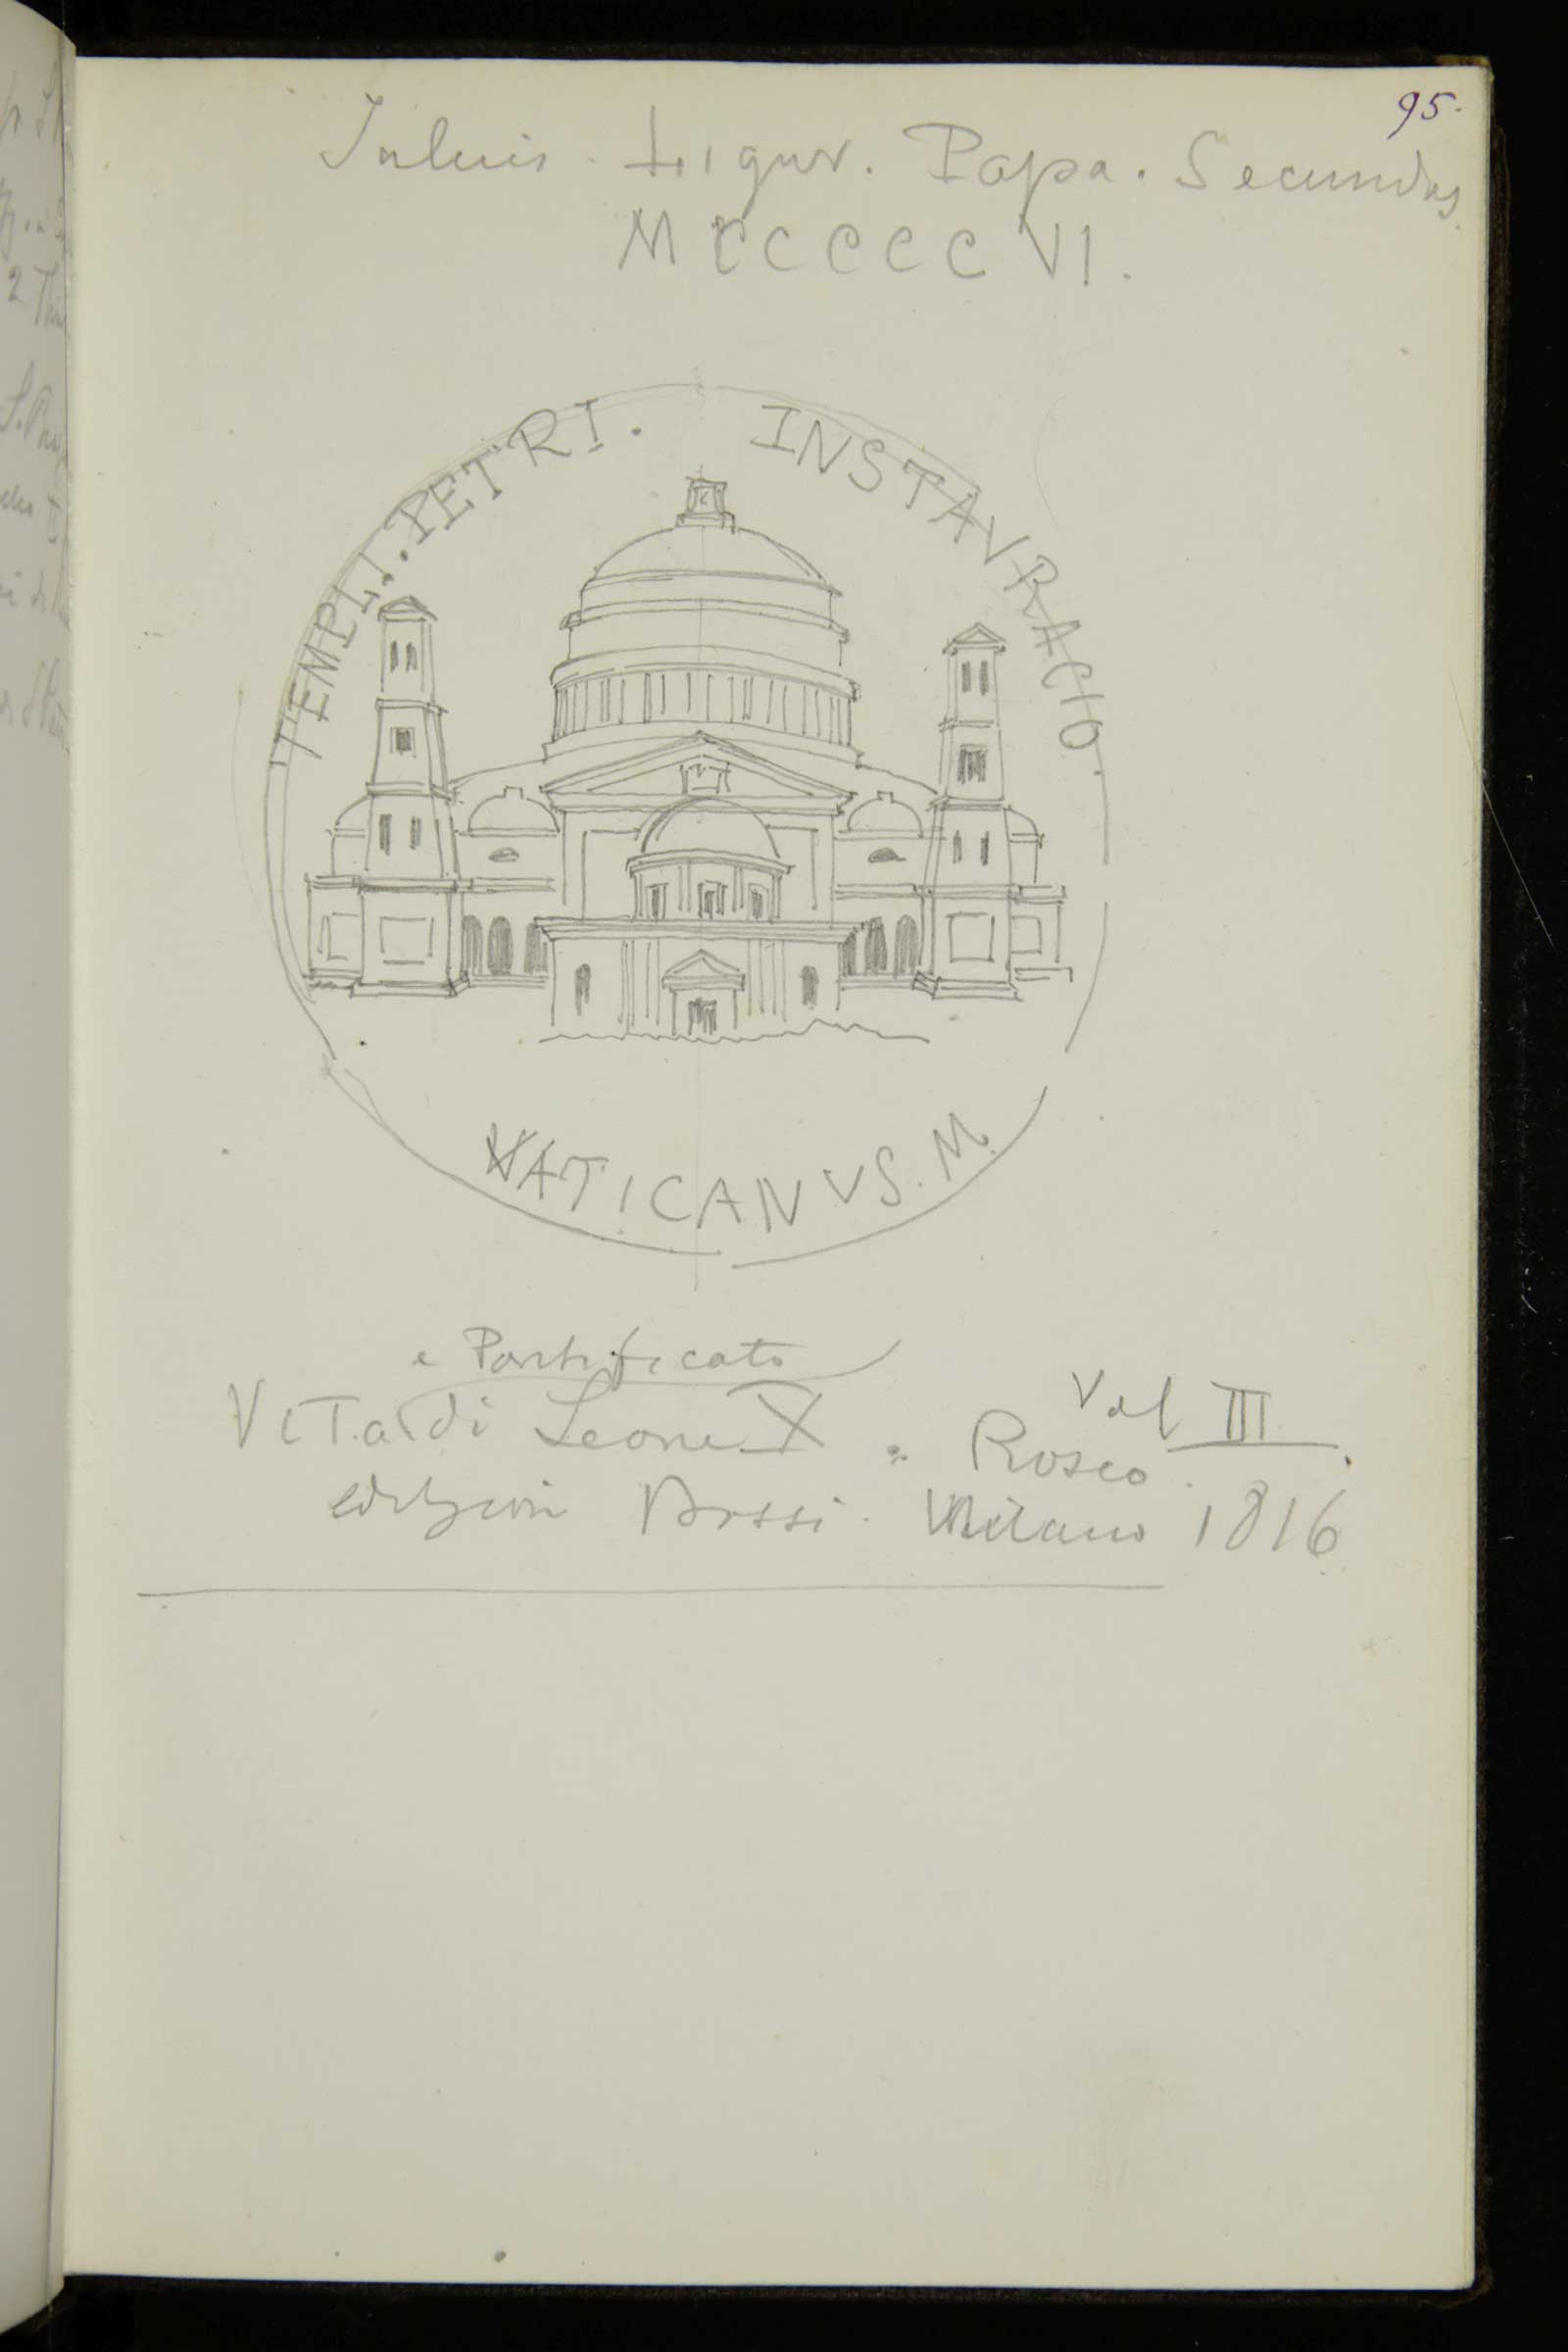 95.
Julius. Ligur. Papa. Secundus
MCCCCCVI.
TEMPLI. PETRI. INSTAVRACIO.
VATICANVS. M.
e Pontificato
Vol III.
Vita di Leone X. Rosco.
edizioni Bossi. Milano 1816